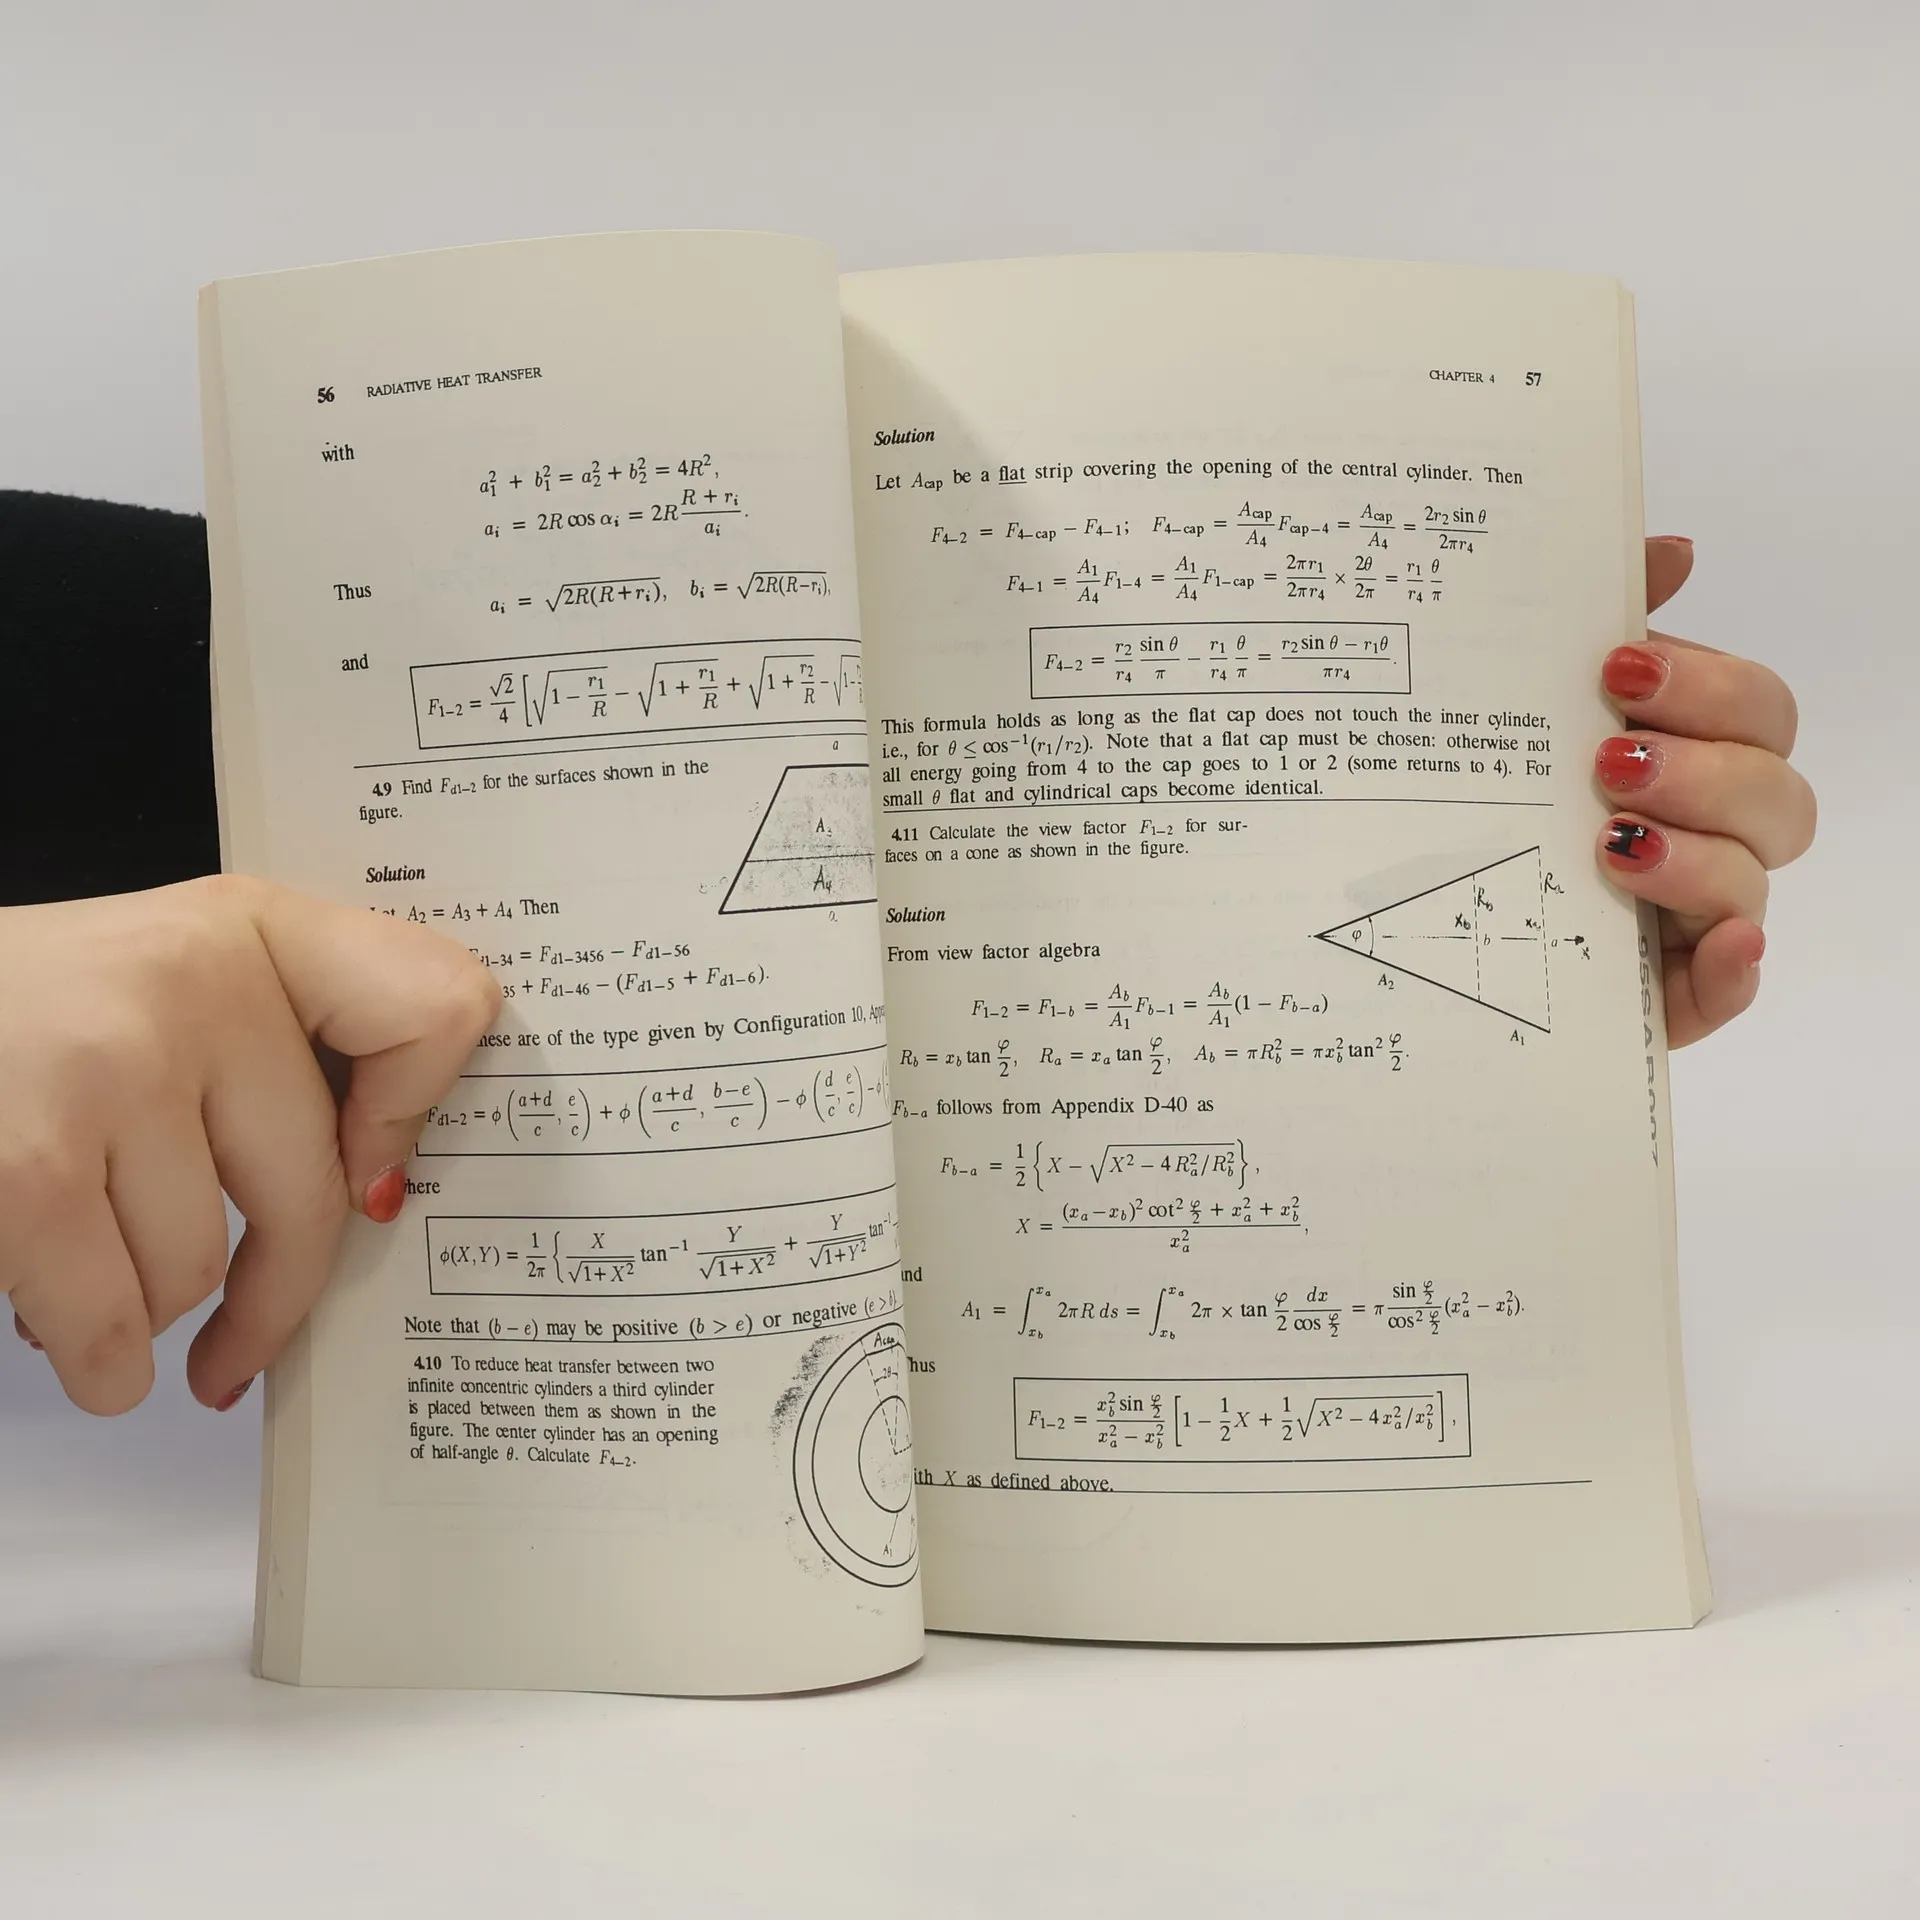 56 RADIATIVE HEAT TRANSFER
with
a₁² + b₁² = a₂² + b₂² = 4R²,
aᵢ = 2R cos αᵢ = 2R (R + rᵢ)/aᵢ.
Thus
aᵢ = √(2R(R+rᵢ)), bᵢ = √(2R(R−rᵢ)),
and
F₁₋₂ = √2/4 [√(1 − r₁/R) − √(1 + r₁/R) + √(1 + r₂/R) − √(1−
4.9 Find F_d1−2 for the surfaces shown in the
figure.
a
A₃
A₄
Solution
A₂ = A₃ + A₄ Then
d1−34 = F_d1−3456 − F_d1−56
35 + F_d1−46 − (F_d1−5 + F_d1−6).
are of the type given by Configuration 10,
F_d1−2 = ϕ((a+d)/c, e/c) + ϕ((a+d)/c, (b−e)/c) − ϕ(d/c, e/c) − ϕ(
here
ϕ(X,Y) = 1/2π { X/√(1+X²) tan⁻¹ Y/√(1+X²) + Y/√(1+Y²) tan⁻¹
Note that (b − e) may be positive (b > e) or negative (e > b).
4.10 To reduce heat transfer between two
infinite concentric cylinders a third cylinder
is placed between them as shown in the
figure. The center cylinder has an opening
of half-angle θ. Calculate F₄₋₂.
A_cap
2θ
A₁
CHAPTER 4 57
Solution
Let A_cap be a flat strip covering the opening of the central cylinder. Then
F₄₋₂ = F₄₋cap − F₄₋₁; F₄₋cap = A_cap/A₄ F_cap−4 = A_cap/A₄ = 2r₂ sin θ/2πr₄
F₄₋₁ = A₁/A₄ F₁₋₄ = A₁/A₄ F₁₋cap = 2πr₁/2πr₄ × 2θ/2π = r₁/r₄ θ/π
F₄₋₂ = r₂/r₄ sin θ/π − r₁/r₄ θ/π = (r₂ sin θ − r₁θ)/πr₄.
This formula holds as long as the flat cap does not touch the inner cylinder,
i.e., for θ ≤ cos⁻¹(r₁/r₂). Note that a flat cap must be chosen: otherwise not
all energy going from 4 to the cap goes to 1 or 2 (some returns to 4). For
small θ flat and cylindrical caps become identical.
4.11 Calculate the view factor F₁₋₂ for sur-
faces on a cone as shown in the figure.
φ
x_b
R_b
b
x_a
R_a
a
x
A₂
A₁
Solution
From view factor algebra
F₁₋₂ = F₁₋b = A_b/A₁ F_b−1 = A_b/A₁ (1 − F_b−a)
R_b = x_b tan φ/2, R_a = x_a tan φ/2, A_b = πR_b² = πx_b² tan² φ/2.
F_b−a follows from Appendix D-40 as
F_b−a = 1/2 {X − √(X² − 4R_a²/R_b²)},
X = ((x_a − x_b)² cot² φ/2 + x_a² + x_b²)/x_a²,
and
A₁ = ∫_{x_b}^{x_a} 2πR ds = ∫_{x_b}^{x_a} 2π × tan φ/2 dx/cos φ/2 = π sin φ/2 / cos² φ/2 (x_a² − x_b²).
hus
F₁₋₂ = x_b² sin φ/2 / (x_a² − x_b²) [1 − 1/2 X + 1/2 √(X² − 4x_a²/x_b²)],
ith X as defined above.